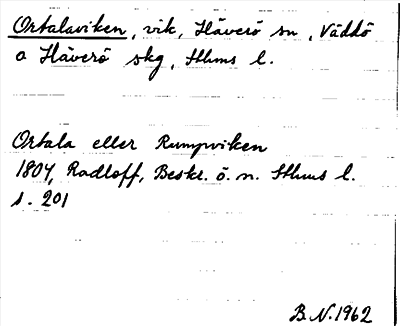 Ortalaviken, vik, Häverö sn, Väddö
o Häverö skg, Sthms l.
Ortala eller Rumpviken
1804, Radloff, Beskr. ö. n. Sthms l.
s. 201
B.N. 1962